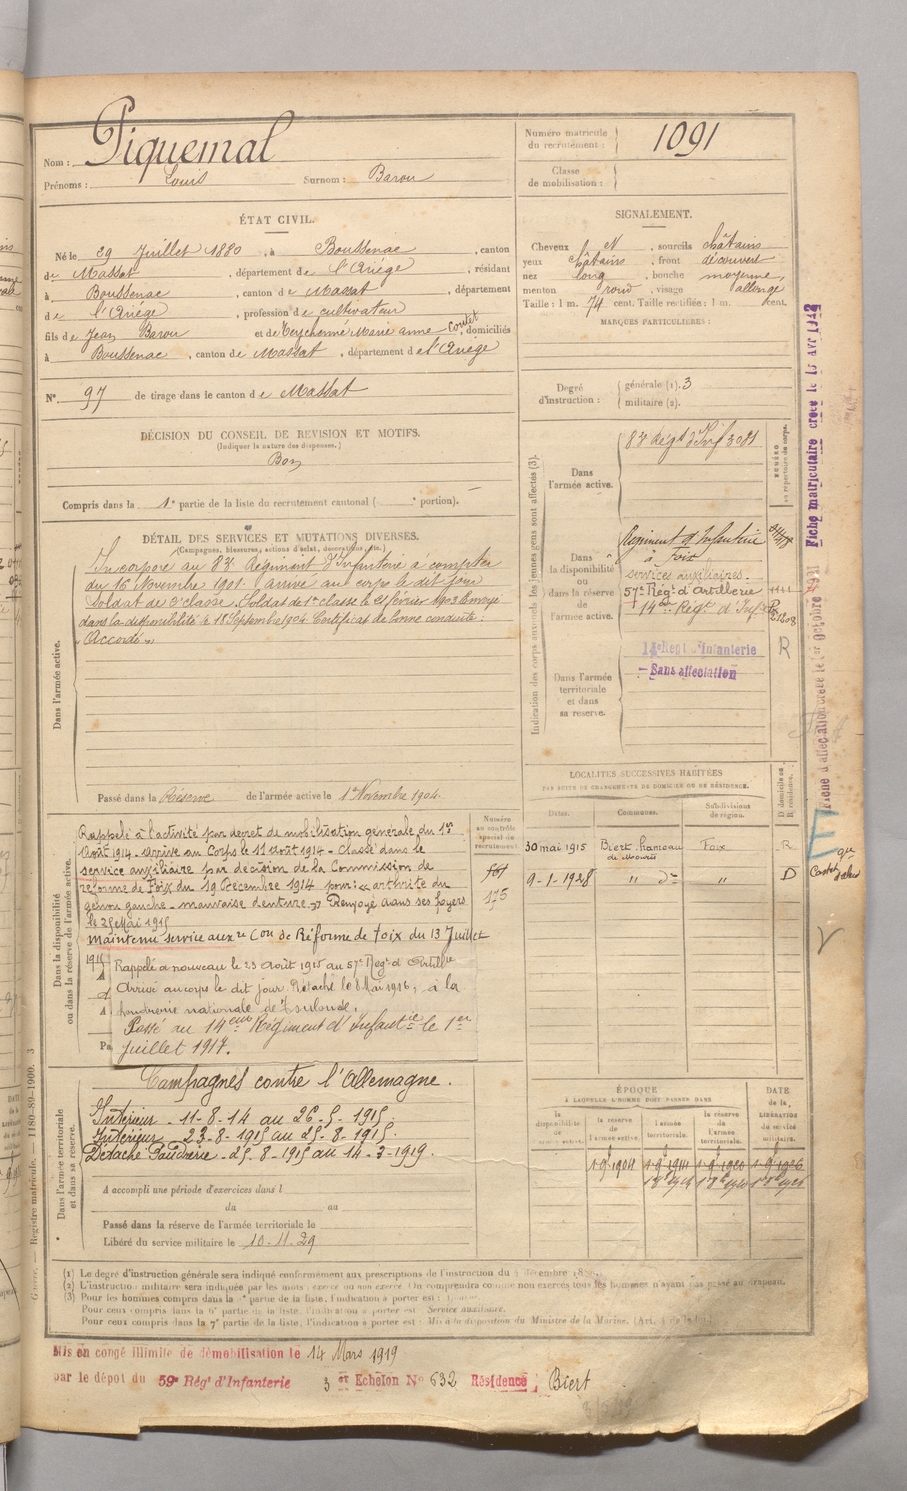 Nom : Piquemal
Prénoms : Louis Surnom : Barou
Numéro matricule du recrutement : 1091
Classe de mobilisation :
ÉTAT CIVIL.
Né le 29 Juillet 1880, à Boussenac, canton
de Massat, département de l'Ariège, résidant
à Boussenac, canton de Massat, département
de l'Ariège, profession de cultivateur
fils de Jean Barou et de Marie anne Coutet domiciliés
à Boussenac, canton de Massat, département de l'Ariège
N° 97 de tirage dans le canton de Massat
SIGNALEMENT.
Cheveux N, sourcils châtains
yeux châtains, front découvert
nez long, bouche moyenne
menton rond, visage allongé
Taille : 1 m. 74 cent. Taille rectifiée : 1 m. cent.
MARQUES PARTICULIÈRES :
Degré d'instruction : générale (1). 3
militaire (2).
DÉCISION DU CONSEIL DE REVISION ET MOTIFS.
(Indiquer la nature des dispenses.)
Bon
Compris dans la 1e partie de la liste du recrutement cantonal ( e portion).
DÉTAIL DES SERVICES ET MUTATIONS DIVERSES.
(Campagnes, blessures, actions d'éclat, décorations, etc.)
Dans l'armée active.
Incorporé au 83e Régiment d'Infanterie à compter
du 16 Novembre 1901. arrivé au corps le dit jour
Soldat de 2e classe. Soldat de 1re classe le février 1903 Envoyé
dans la disponibilité le 18 Septembre 1904 Certificat de bonne conduite :
"Accordé"
Passé dans la Réserve de l'armée active le 1er Novembre 1904.
Indication des corps auxquels les jeunes gens sont affectés (3).
NUMÉRO au répertoire du corps.
Dans l'armée active.
83e Régt d'Inf 3081
Dans la disponibilité ou dans la réserve de l'armée active.
Régiment d'Infanterie
à Foix
services auxiliaires.
57e Régt d'Artillerie
14me Régt d'Inf
Dans l'armée territoriale et dans sa réserve.
14e Regt d'Infanterie
Sans affectation
R
Dans la disponibilité ou dans la réserve de l'armée active.
Numéro au contrôle spécial du recrutement
173
Rappelé à l'activité par décret de mobilisation générale du 1er
Août 1914 - arrivé au Corps le 11 août 1914 - Classé dans le
service auxiliaire par décision de la Commission de
réforme de Foix du 19 Décembre 1914 pour "arthrite du
genou gauche - mauvaise denture" Renvoyé dans ses foyers
le 25 Mai 1915
Maintenu service auxre Con de Réforme de Foix du 13 Juillet
1915
Rappelé à nouveau le 23 Août 1915 au 57e Régt d'Artillie
Arrivé au corps le dit jour. Détaché le 8 Mai 1916, à la
poudrerie nationale de Toulouse.
Passé au 14eme Régiment d'Infantie le 1er
Juillet 1917.
LOCALITÉS SUCCESSIVES HABITÉES
PAR SUITE DE CHANGEMENTS DE DOMICILE OU DE RÉSIDENCE.
Dates. Communes. Subdivisions de région. D domicile ou R résidence.
30 mai 1915 Biert, hameau Foix R
9-1-1928 " do " D
Dans l'armée territoriale et dans sa réserve.
Campagnes contre l'Allemagne.
Intérieur - 11-8-14 au 26-5-1915.
Intérieur 23-8-1915 au 25-8-1915.
Détaché Poudrerie - 25-8-1915 au 14-3-1919.
A accompli une période d'exercices dans l
du au
Passé dans la réserve de l'armée territoriale le
Libéré du service militaire le 10-11-29
ÉPOQUE
À LAQUELLE L'HOMME DOIT PASSER DANS
la disponibilité de l'armée active. la réserve de l'armée active. l'armée territoriale. la réserve de l'armée territoriale.
DATE de la LIBÉRATION du service militaire.
Registre matricule. — 1180-89-1900. 3
(1) Le degré d'instruction générale sera indiqué conformément aux prescriptions de l'instruction du
(2) L'instruction militaire sera indiquée par les mots : exercé ou non exercé. On comprendra comme non exercés tous les hommes n'ayant pas passé au drapeau.
(3) Pour les hommes compris dans la partie de la liste, l'indication à porter est :
Pour ceux compris dans la 6e partie de la liste, l'indication à porter est : Service auxiliaire.
Pour ceux compris dans la 7e partie de la liste, l'indication à porter est : Mis à la disposition du Ministre de la Marine.
Mis en congé illimité de démobilisation le 14 Mars 1919
par le dépôt du 59e Régt d'Infanterie 3 Echelon No 632 Résidence Biert
Fiche matriculaire créée le 15 AVR 1942